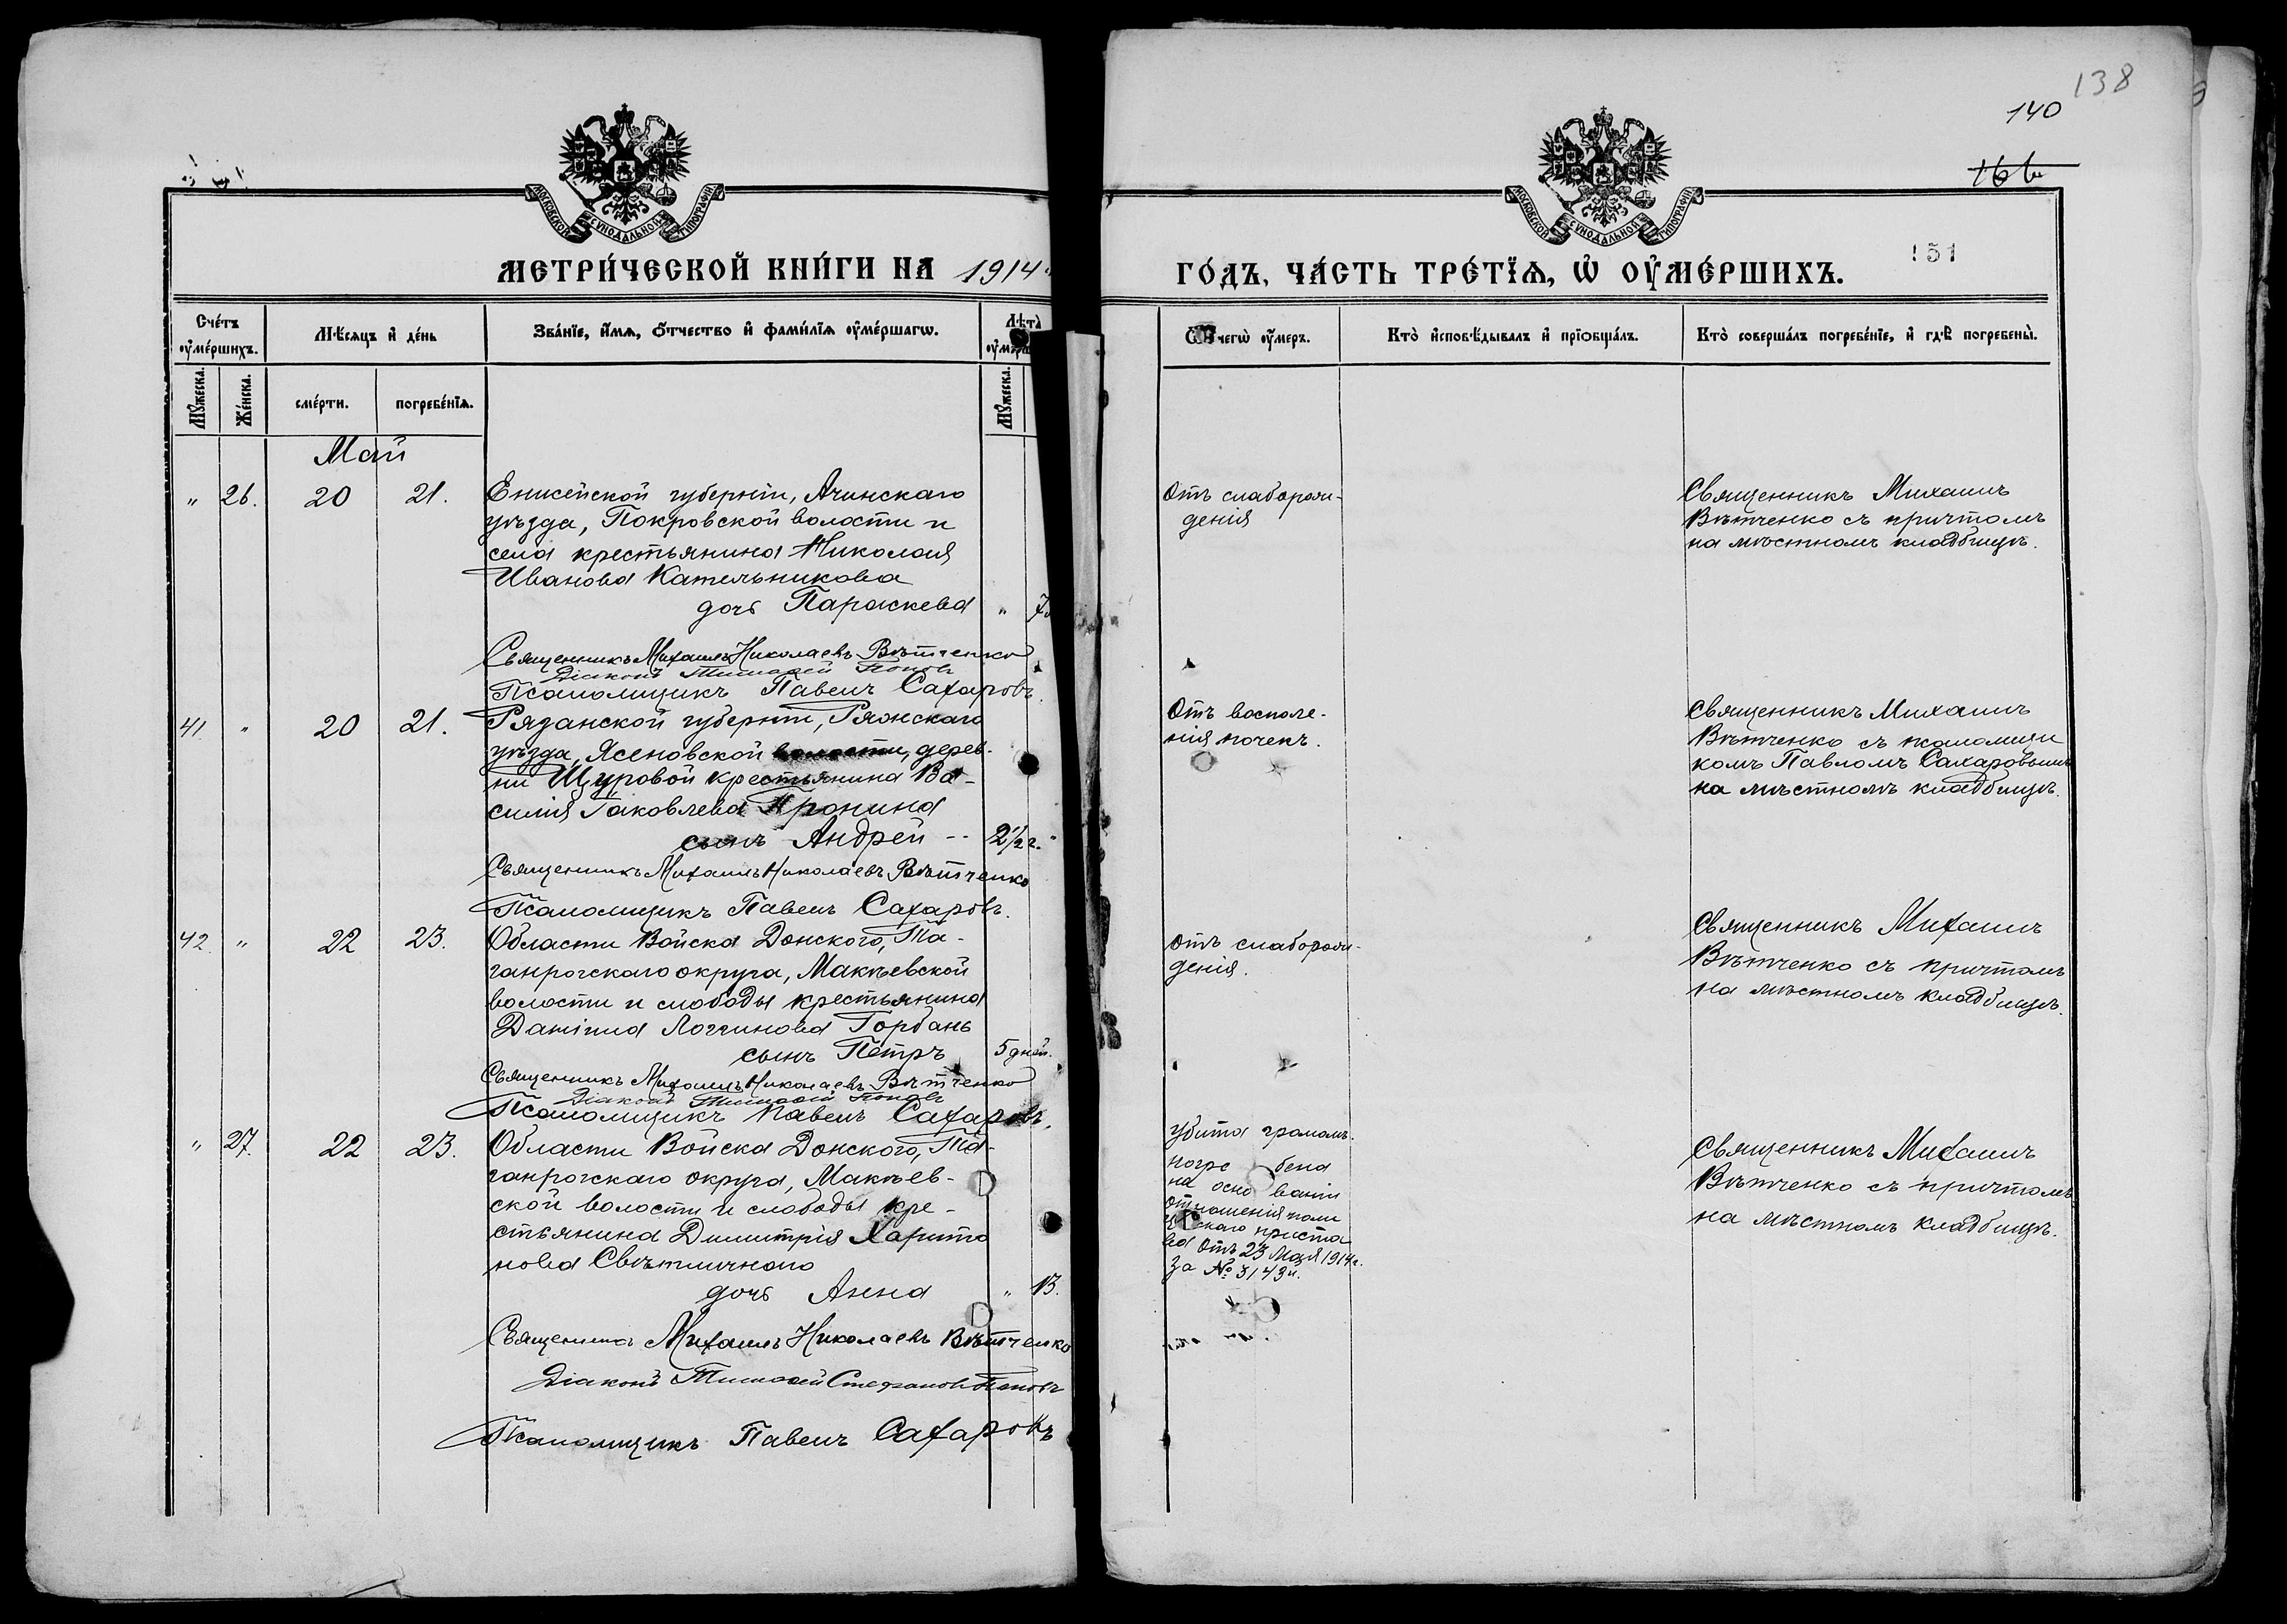 138
140
166
151
МОСКОВСКОЙ СѴНОДАЛЬНОЙ ТИПОГРАФІИ
МОСКОВСКОЙ СѴНОДАЛЬНОЙ ТИПОГРАФІИ
МЕТРИ́ЧЕСКОЙ КНИ́ГИ НА 1914
ГО́ДЪ, ЧА́СТЬ ТРЕ́ТЇѦ, Ѡ҆ ОУ҆МЕ́РШИХЪ.
Сче́тъ оу҆ме́ршихъ.
Мѣ́сяцъ и҆ де́нь
Зва́нїе, и҆́мѧ, ѻ҆́тчество и҆ фами́лїѧ оу҆ме́ршагѡ.
Лѣ́та̀
Ѿ чегѡ̀ оу҆́меръ.
Кто̀ и҆сповѣ́дывалъ и҆ прїобща́лъ.
Кто̀ соверша́лъ погребе́нїе, и҆ гдѣ̀ погребены̀.
Мꙋ́жеска.
Же́нска.
сме́рти.
погребе́нїѧ.
Мꙋ́жеска.
Май
" 26. 20 21. Енисейской губерніи, Ачинскаго
уѣзда, Покровской волости и
села крестьянина Николая
Иванова Кательникова
дочь Параскева "
Священникъ Михаилъ Николаевъ Вѣтченко
Діаконъ Тимоѳей Поповъ
Псаломщикъ Павелъ Сахаровъ.
Отъ слаборож-
денія
Священникъ Михаилъ
Вѣтченко съ причтомъ
на мѣстномъ кладбищѣ.
41. " 20 21. Рязанской губерніи, Ряжскаго
уѣзда, Ясеновской волости, дерев-
ни Щуровой крестьянина Ва-
силія Іаковлева Пронина
сынъ Андрей -- 2½ г.
Священникъ Михаилъ Николаевъ Вѣтченко
Псаломщикъ Павелъ Сахаровъ.
Отъ воспале-
нія почекъ.
Священникъ Михаилъ
Вѣтченко съ псаломщи
комъ Павломъ Сахаровымъ
на мѣстномъ кладбищѣ.
42. " 22 23. Области Войска Донского, Та-
ганрогскаго округа, Макѣевской
волости и слободы крестьянина
Даніила Логгинова Горбань
сынъ Петръ 5 дней.
Священникъ Михаилъ Николаевъ Вѣтченко
Діаконъ Тимоѳей Поповъ
Псаломщикъ Павелъ Сахаровъ.
отъ слаборож-
денія.
Священникъ Михаилъ
Вѣтченко съ причтомъ
на мѣстномъ кладбищѣ.
" 27. 22 23. Области Войска Донского, Та-
ганрогскаго округа, Макѣев-
ской волости и слободы кре-
стьянина Димитрія Харито
нова Свѣтличнаго
дочь Анна " 13.
Священникъ Михаилъ Николаевъ Вѣтченко
Діаконъ Тимоѳей Стефановъ Поповъ
Псаломщикъ Павелъ Сахаровъ
убита громомъ.
погребена
на основаніи
отношенія поли
цейскаго приста
ва отъ 23 Мая 1914 г.
За № 3143
Священникъ Михаилъ
Вѣтченко съ причтомъ
на мѣстномъ кладбищѣ.